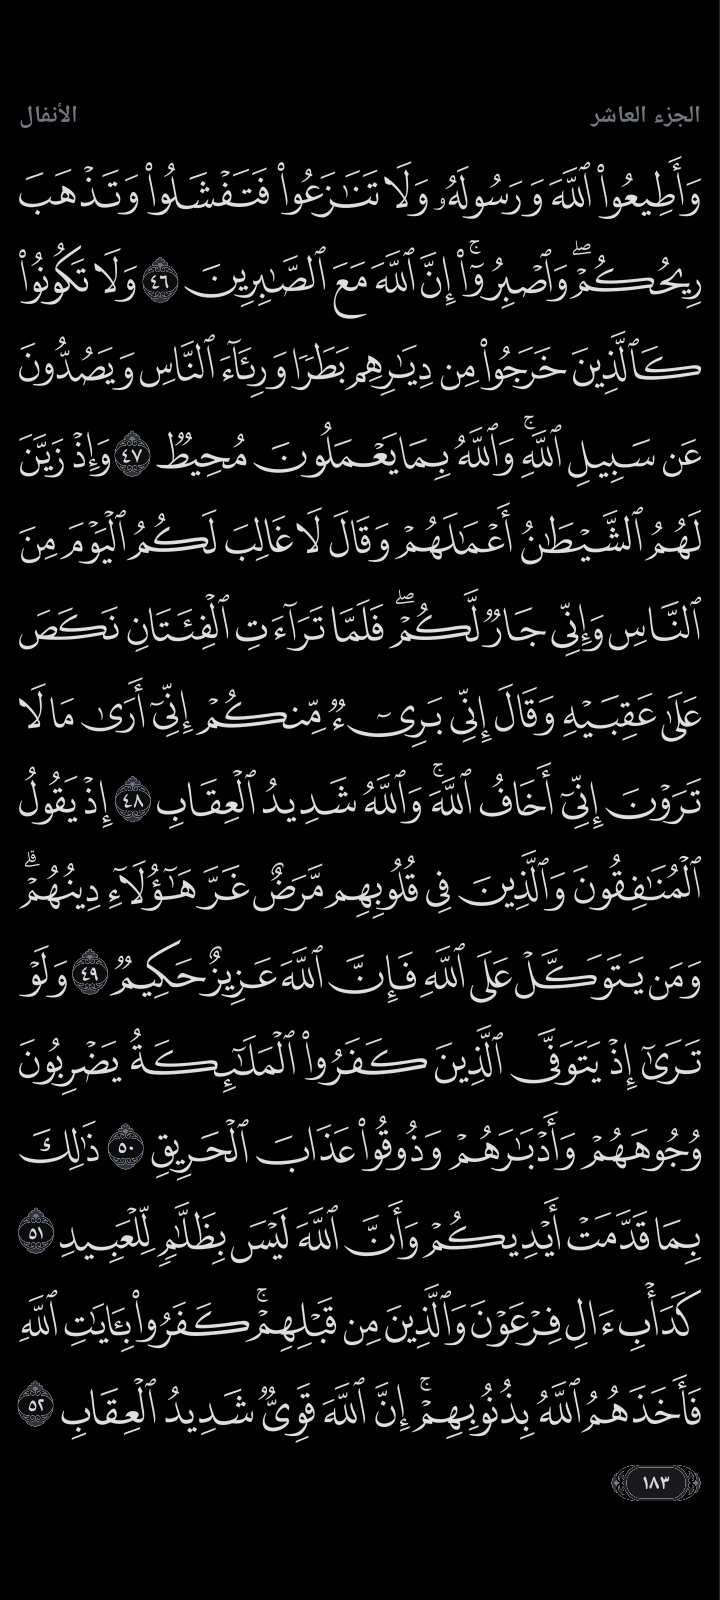 الجزء العاشر
الأنفال
وَأَطِيعُوا۟ ٱللَّهَ وَرَسُولَهُۥ وَلَا تَنَـٰزَعُوا۟ فَتَفْشَلُوا۟ وَتَذْهَبَ
رِيحُكُمْ ۖ وَٱصْبِرُوٓا۟ ۚ إِنَّ ٱللَّهَ مَعَ ٱلصَّـٰبِرِينَ ٤٦ وَلَا تَكُونُوا۟
كَٱلَّذِينَ خَرَجُوا۟ مِن دِيَـٰرِهِم بَطَرًا وَرِئَآءَ ٱلنَّاسِ وَيَصُدُّونَ
عَن سَبِيلِ ٱللَّهِ ۚ وَٱللَّهُ بِمَا يَعْمَلُونَ مُحِيطٌ ٤٧ وَإِذْ زَيَّنَ
لَهُمُ ٱلشَّيْطَـٰنُ أَعْمَـٰلَهُمْ وَقَالَ لَا غَالِبَ لَكُمُ ٱلْيَوْمَ مِنَ
ٱلنَّاسِ وَإِنِّى جَارٌ لَّكُمْ ۖ فَلَمَّا تَرَآءَتِ ٱلْفِئَتَانِ نَكَصَ
عَلَىٰ عَقِبَيْهِ وَقَالَ إِنِّى بَرِىٓءٌ مِّنكُمْ إِنِّىٓ أَرَىٰ مَا لَا
تَرَوْنَ إِنِّىٓ أَخَافُ ٱللَّهَ ۚ وَٱللَّهُ شَدِيدُ ٱلْعِقَابِ ٤٨ إِذْ يَقُولُ
ٱلْمُنَـٰفِقُونَ وَٱلَّذِينَ فِى قُلُوبِهِم مَّرَضٌ غَرَّ هَـٰٓؤُلَآءِ دِينُهُمْ ۗ
وَمَن يَتَوَكَّلْ عَلَى ٱللَّهِ فَإِنَّ ٱللَّهَ عَزِيزٌ حَكِيمٌ ٤٩ وَلَوْ
تَرَىٰٓ إِذْ يَتَوَفَّى ٱلَّذِينَ كَفَرُوا۟ ٱلْمَلَـٰٓئِكَةُ يَضْرِبُونَ
وُجُوهَهُمْ وَأَدْبَـٰرَهُمْ وَذُوقُوا۟ عَذَابَ ٱلْحَرِيقِ ٥٠ ذَٰلِكَ
بِمَا قَدَّمَتْ أَيْدِيكُمْ وَأَنَّ ٱللَّهَ لَيْسَ بِظَلَّـٰمٍ لِّلْعَبِيدِ ٥١
كَدَأْبِ ءَالِ فِرْعَوْنَ وَٱلَّذِينَ مِن قَبْلِهِمْ ۚ كَفَرُوا۟ بِـَٔايَـٰتِ ٱللَّهِ
فَأَخَذَهُمُ ٱللَّهُ بِذُنُوبِهِمْ ۚ إِنَّ ٱللَّهَ قَوِىٌّ شَدِيدُ ٱلْعِقَابِ ٥٢
١٨٣